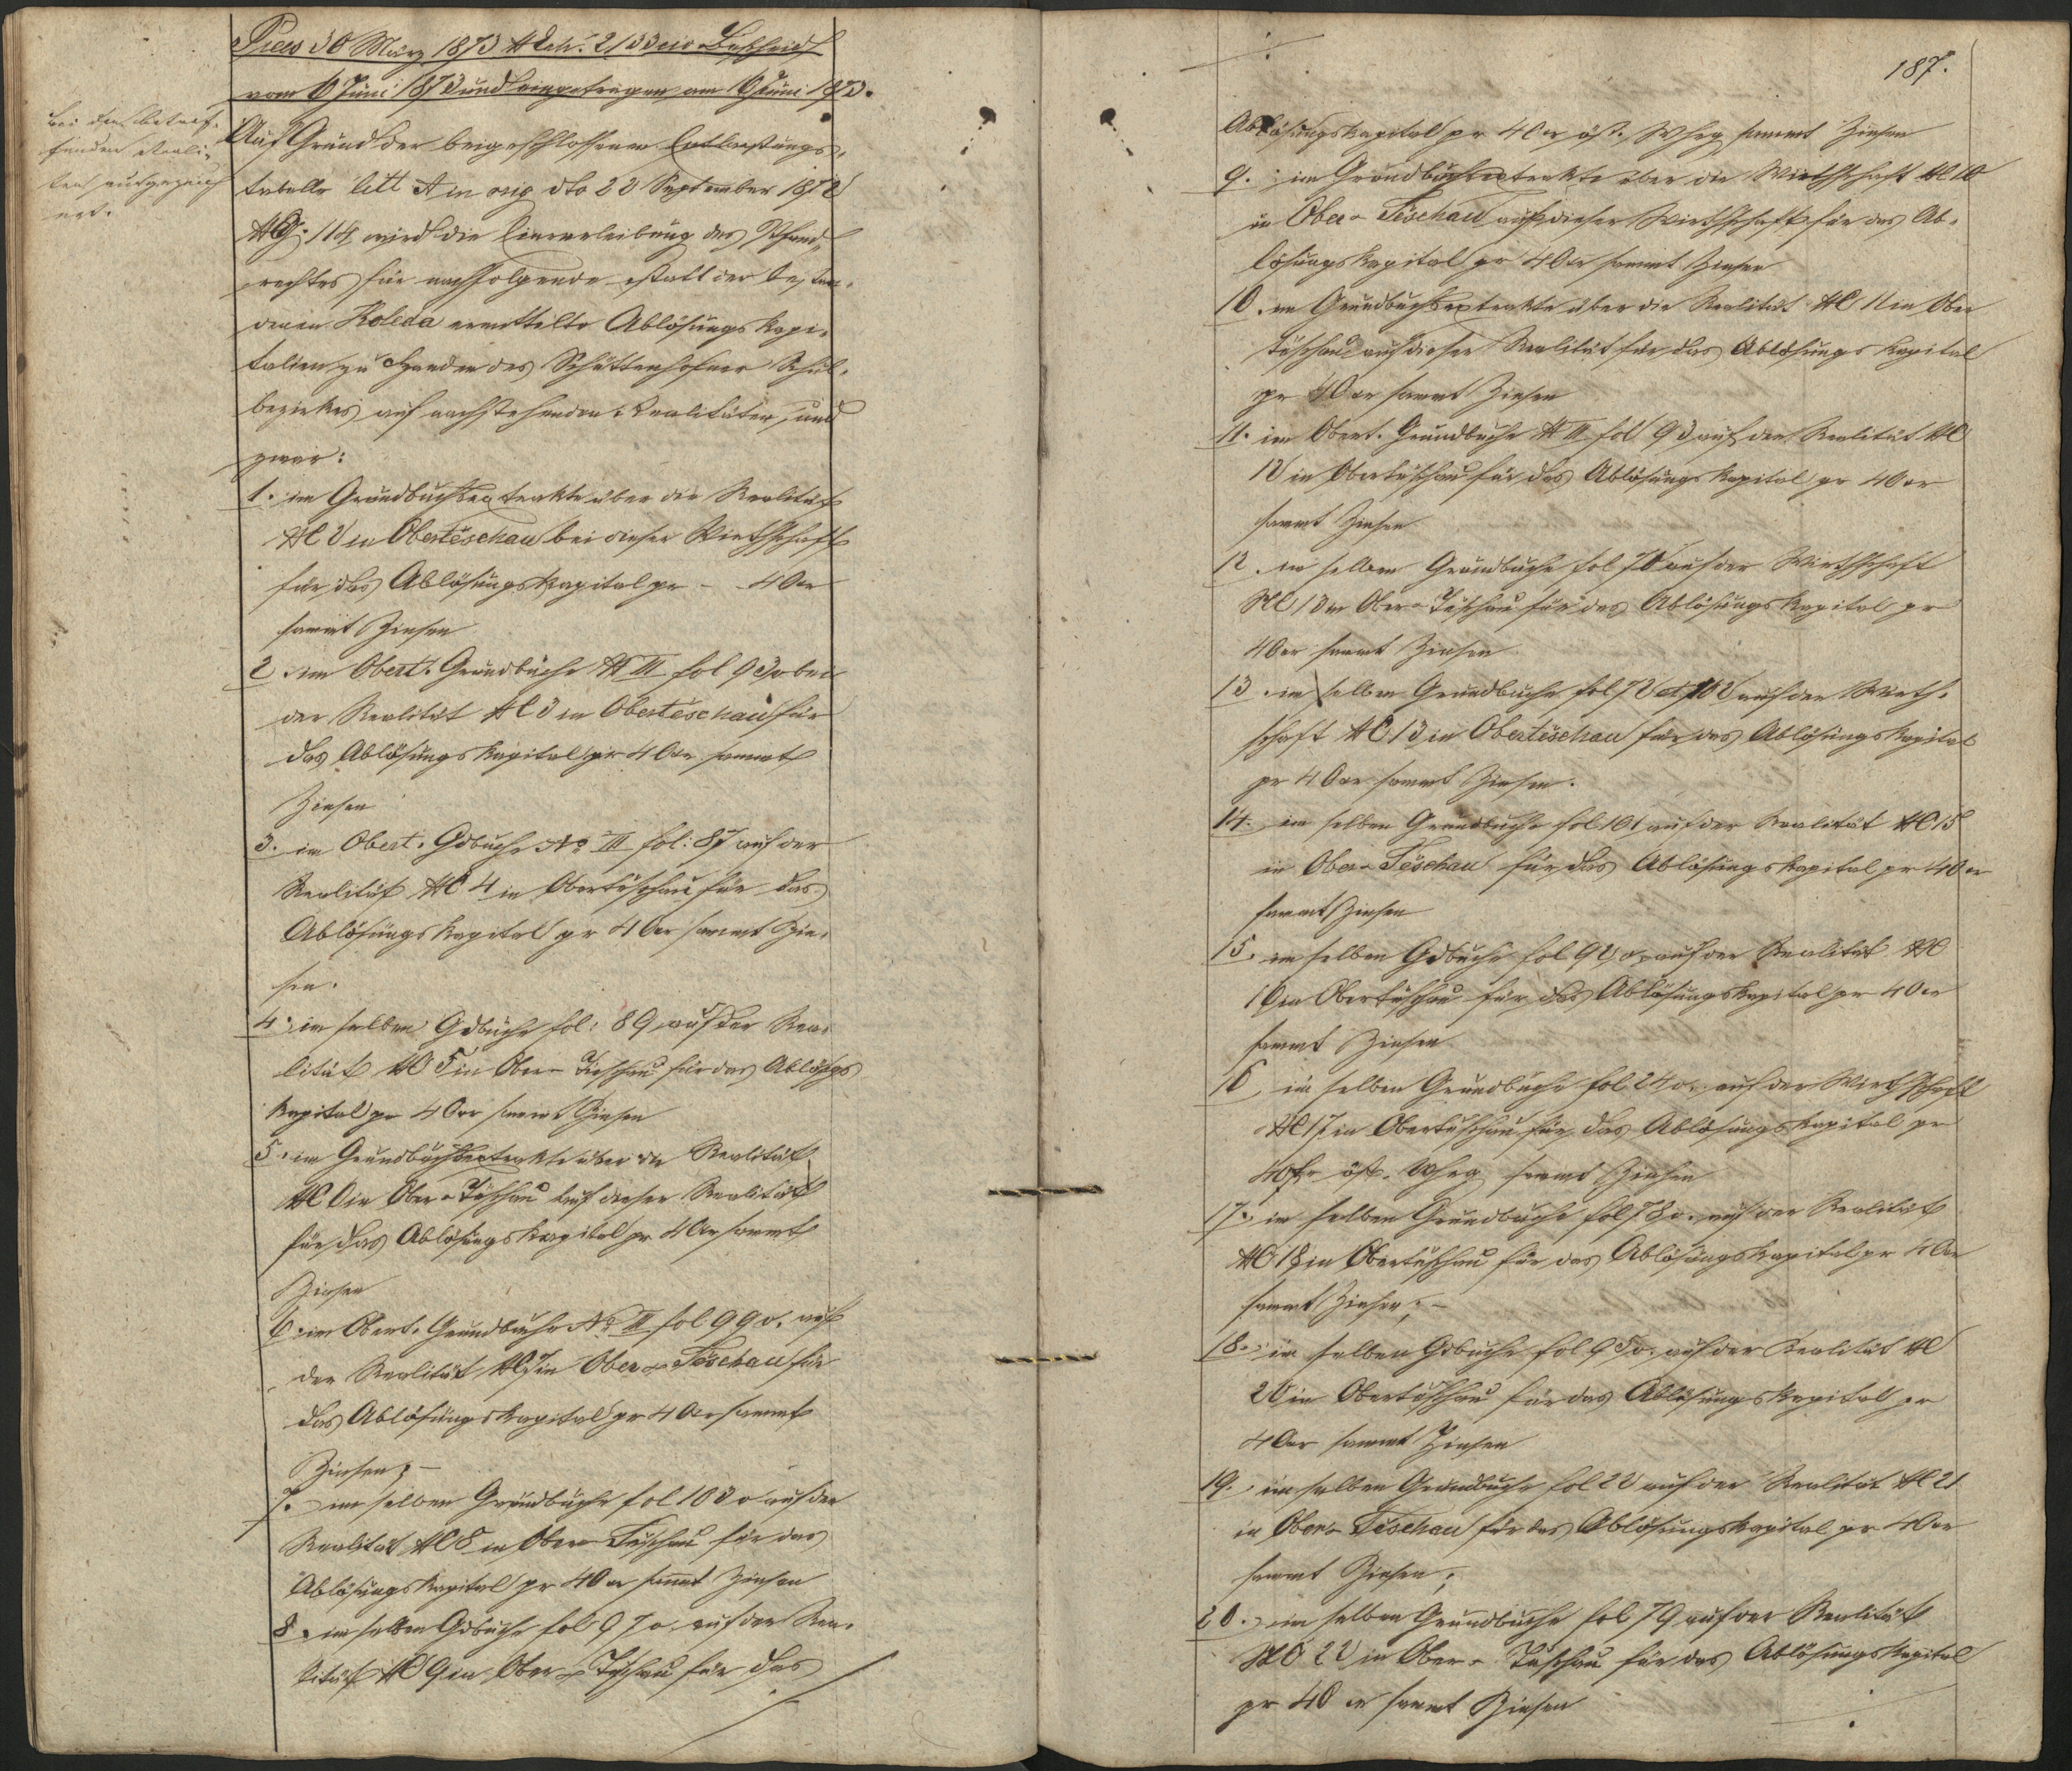 Praes 30 März 1873 N Exh. 2133 eio Bescheid
vom 6 Juni 1873 und eingetragen am 6 Juni 1873.
bei den betref-
fenden Reali-
täten
Auf Grund der beigeschlossenen Entlastungs-
tabelle litt A in orig dto 22 September 1872
114 wird die Einverleibung des Pfand-
rechtes für nachfolgende statt der
Koleda ermittelte Ablösungs Kapi-
talien zu Handen des Schüttenhofner Schul-
bezirkes auf nachstehenden Realitäten, und
zwar:
1. im Grundbuchsextrakte über die Realität
NC 2 in Obertěschau bei dieser Wirthschaft
für das Ablösungskapital pr - 40 xr
sammt Zinsen
2. im Obert. Grundbuche N III fol bei
der Realität NC 3 in Obertěschau für
das Ablösungs Kapital pr 40 xr sammt
Zinsen
3. im Obert. Gdbuche No III fol: 87 auf der
Realität NC 4 in Obertěschau für das
Ablösungs Kapital pr 40 xr sammt Zin-
sen.
4. im selben Gdbuche fol: 89 auf der Rea-
lität NC 5 in Ober-Těschau für das Ablösgs
Kapital pr 40 xr sammt Zinsen
5. im Grundbuchsextrakte über die Realität
NC 6 in Ober-Těschau auf dieser Realität
für das Ablösungs Kapital pr 40 xr sammt
Zinsen
6. im Obert. Grundbuche No III fol 99 v. auf
der Realität NC 7 in Ober-Těschau für
das Ablösungskapital pr 40 xr sammt
Zinsen; -
7. im selben Grundbuche fol 103 v auf der
Realität NC 8 in Ober-Těschau für das
Ablösungskapital pr 40 xr sammt Zinsen
8. im selben Gdbuche fol 97 v. auf der Rea-
lität NC 9 in Ober-Těschau für das
187.
Ablösungskapital pr 40 xr öst. Whrg sammt Zinsen
9. im Grundbuchsextrakte über die Wirthschaft NC 10
in Ober-Těschau auf dieser Wirthschaft für das Ab-
lösungskapital pr 40 xr sammt Zinsen
10. im Grundbuchsextrakte über die Realität NC 11 in Ober
těschau auf dieser Realität für das Ablösungs Kapital
pr 40 xr sammt Zinsen
11. im Obert. Grundbuche N III fol 93 auf der Realität NC
12 in Obertěschau für das Ablösungs Kapital pr 40 xr
sammt Zinsen
12. im selben Grundbuche fol auf der Wirthschaft
NC 13 in Ober-Těschau für das Ablösungs Kapital pr
40 xr sammt Zinsen
13. im selben Grundbuche fol 72 et 102 auf der Wirth-
schaft NC 13 in Obertěschau für das Ablösungskapital
pr 40 xr sammt Zinsen.
14. im selben Grundbuche fol 101 auf der Realität NC 15
in Ober-Těschau für das Ablösungskapital pr 40 xr
sammt Zinsen
15. im selben Gdbuche fol 92 v. auf der Realität NC
16 in Obertěschau für das Ablösungskapital pr 40 xr
sammt Zinsen
16. im selben Grundbuche fol 24 v. auf der Wirthschaft
NC 17 in Obertěschau für das Ablösungskapital pr
40 xr öst. Whrg sammt Zinsen
17. im selben Grundbuche fol 78 v. auf der Realität
NC 18 in Obertěschau für das Ablösungskapital pr 40 xr
sammt Zinsen; -
18. im selben Gdbuche fol 95 v. auf der Realität NC
20 in Obertěschau für das Ablösungskapital pr
40 xr sammt Zinsen
19. im selben Grundbuche fol 22 auf der Realität NC 21
in Ober-Těschau für das Ablösungskapital pr 40 xr
sammt Zinsen;
20. im selben Grundbuche fol 79 auf der Realität
NC 22 in Ober-Těschau für das Ablösungskapital
pr 40 xr sammt Zinsen